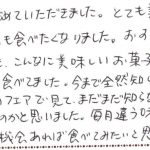 めていただきました。とても美
も食べたくなりました。おす
、こんなに美味しいお菓子
食べてました。今まで全然知
フェアで見て、まだまだ知らな
のかと思いました。毎月違う味
機会あれば食べてみたいと思